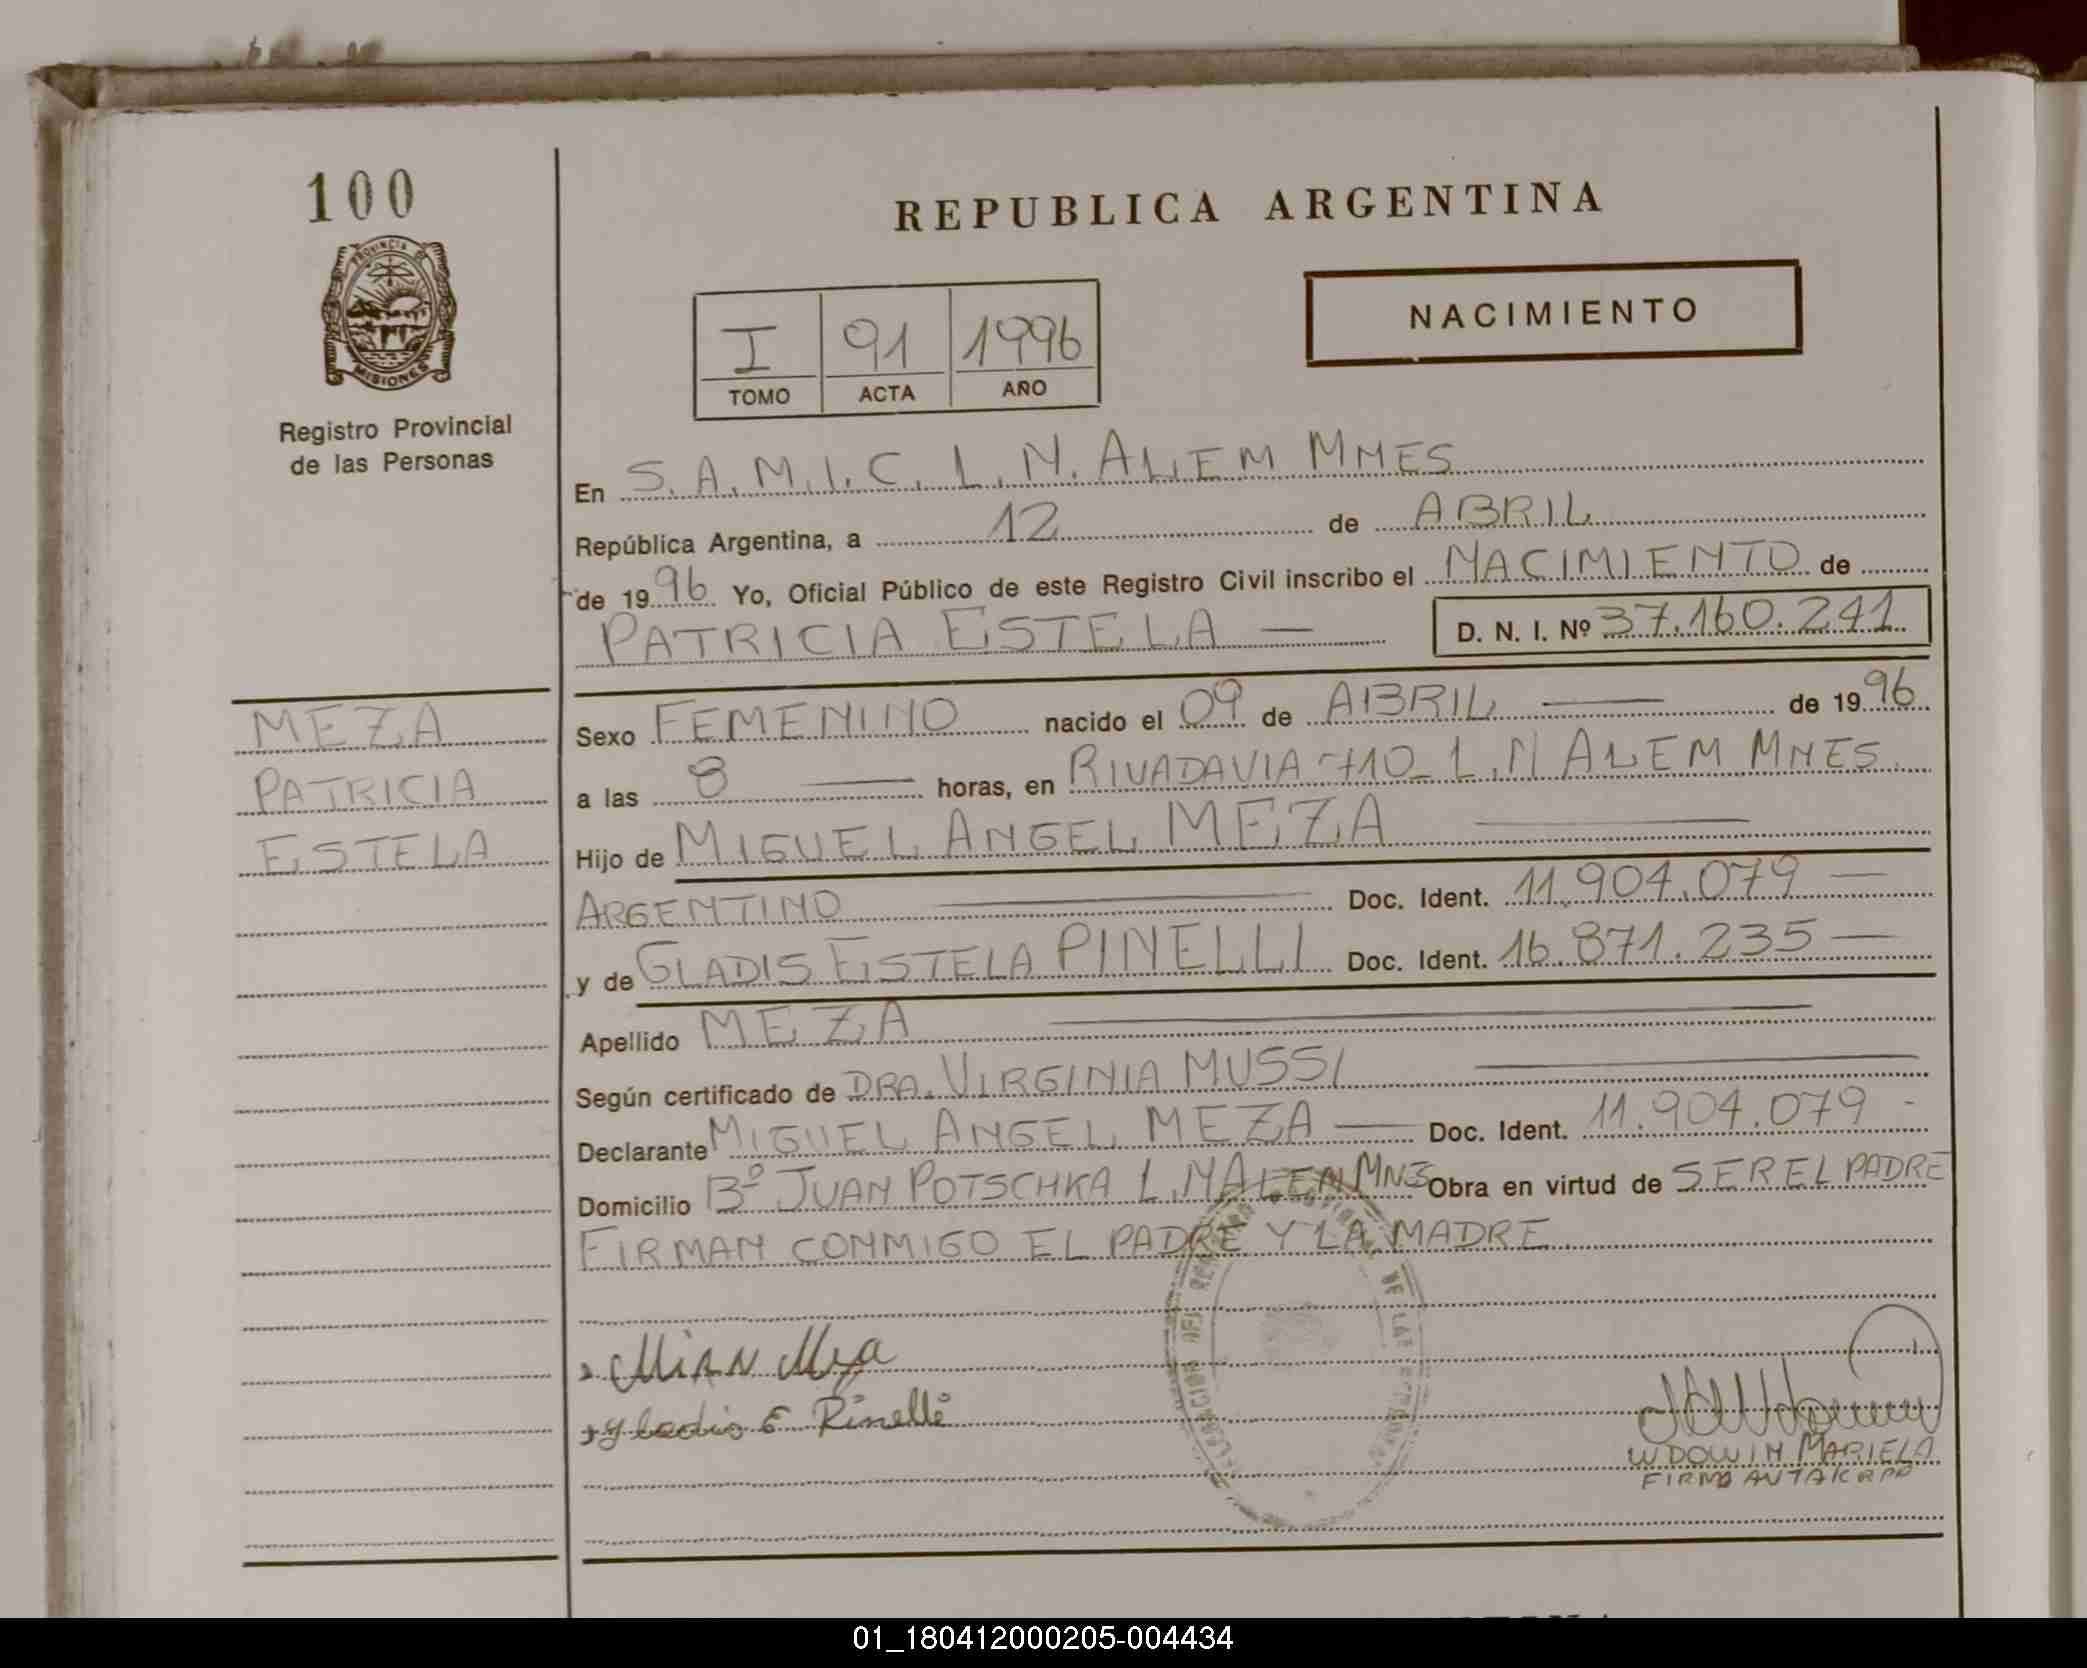 100
REPUBLICA ARGENTINA
PROVINCIA DE
MISIONES
Registro Provincial
de las Personas
I 91 1996
TOMO ACTA AÑO
NACIMIENTO
En S.A.M.I.C. L.N. ALEM MNES
República Argentina, a 12 de ABRIL
de 1996 Yo, Oficial Público de este Registro Civil inscribo el NACIMIENTO de
PATRICIA ESTELA — D. N. I. Nº 37.160.241
MEZA
PATRICIA
ESTELA
Sexo FEMENINO nacido el 09 de ABRIL — de 1996
a las 8 — horas, en RIVADAVIA 710 L.N ALEM MNES.
Hijo de MIGUEL ANGEL MEZA —
ARGENTINO — Doc. Ident. 11.904.079 —
y de GLADIS ESTELA PINELLI Doc. Ident. 16.871.235 —
Apellido MEZA —
Según certificado de DRA. VIRGINIA MUSSI —
Declarante MIGUEL ANGEL MEZA — Doc. Ident. 11.904.079 -
Domicilio Bº JUAN POTSCHKA L.N ALEM MNS Obra en virtud de SER EL PADRE
FIRMAN CONMIGO EL PADRE Y LA MADRE.
Gladis E Pinelli
WDOWIN MARIELA
01_180412000205-004434